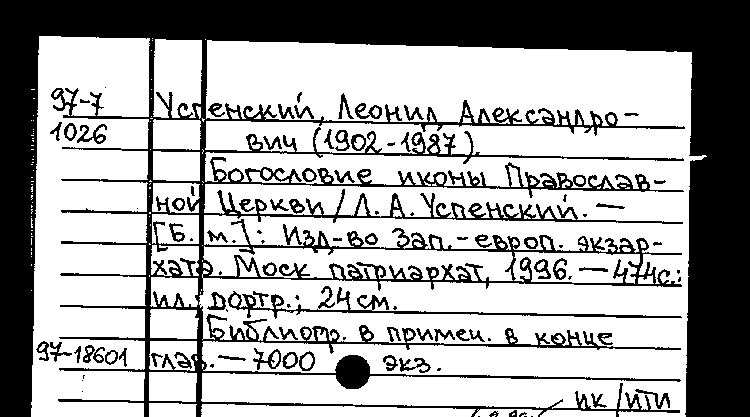 97-7 Успенский, Леонид Александро-
1026 вич (1902-1987).
Богословие иконы Православ-
ной Церкви / Л. А. Успенский. —
[Б. м.]: Изд-во Зап.-европ. экзар-
хата. Моск. патриархат, 1996. — 474с.:
ил., портр.; 24 см.
Библиогр. в примеч. в конце
97-18601 глав. — 7000 экз.
ИК / ИТИ